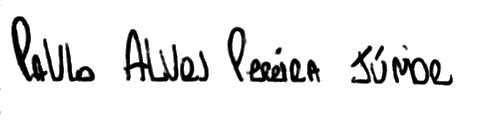 Paulo Alves Pereira Júnior